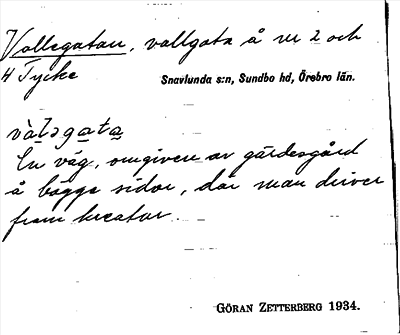 Vallegatan, vallgata å nr 2 och
4 Tycke
Snavlunda s:n, Sundbo hd, Örebro län.
vàlǝgata
En väg, omgiven av gärdesgård
å bägge sidor, där man driver
fram kreatur.
GÖRAN ZETTERBERG 1934.